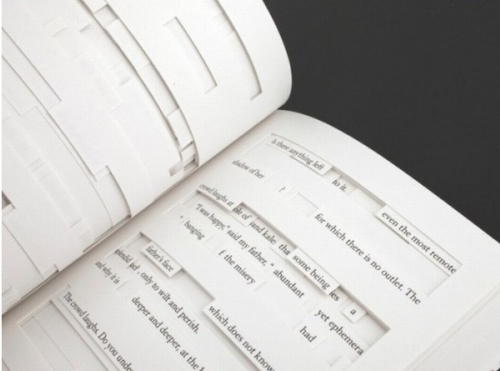 is there anything left to it.
shadow of her
even the most remote
for which there is no outlet. The
crowd laughs at
"I was happy," said my father, "
hanging
and kale tha some being
abundant
f the misery
a
yet ephemera
father's face
only to wilt and perish.
which does not know
had
and why it is
deeper and deeper, at the
The crowd laughs. Do you unde